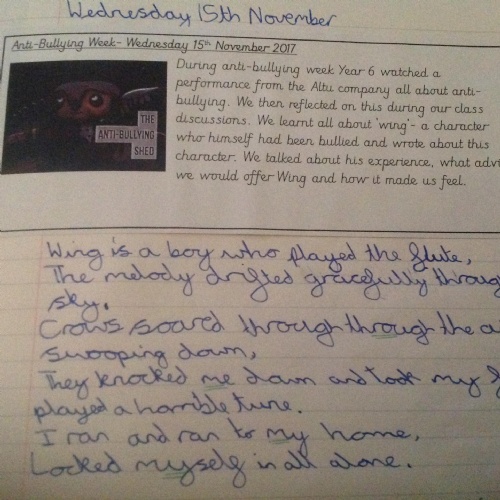 Wednesday 15th November
Anti-Bullying Week- Wednesday 15th November 2017
During anti-bullying week Year 6 watched a
performance from the Altu company all about anti-
bullying. We then reflected on this during our class
discussions. We learnt all about 'wing'- a character
who himself had been bullied and wrote about this
character. We talked about his experience, what
we would offer Wing and how it made us feel.
THE
ANTI-BULLYING
SHED
Wing is a boy who played the flute,
The melody drifted gracefully through
sky.
Crows soared through through the
swooping down,
They knocked me down and took my
played a horrible tune.
I ran and ran to my home,
Locked myself in all alone.